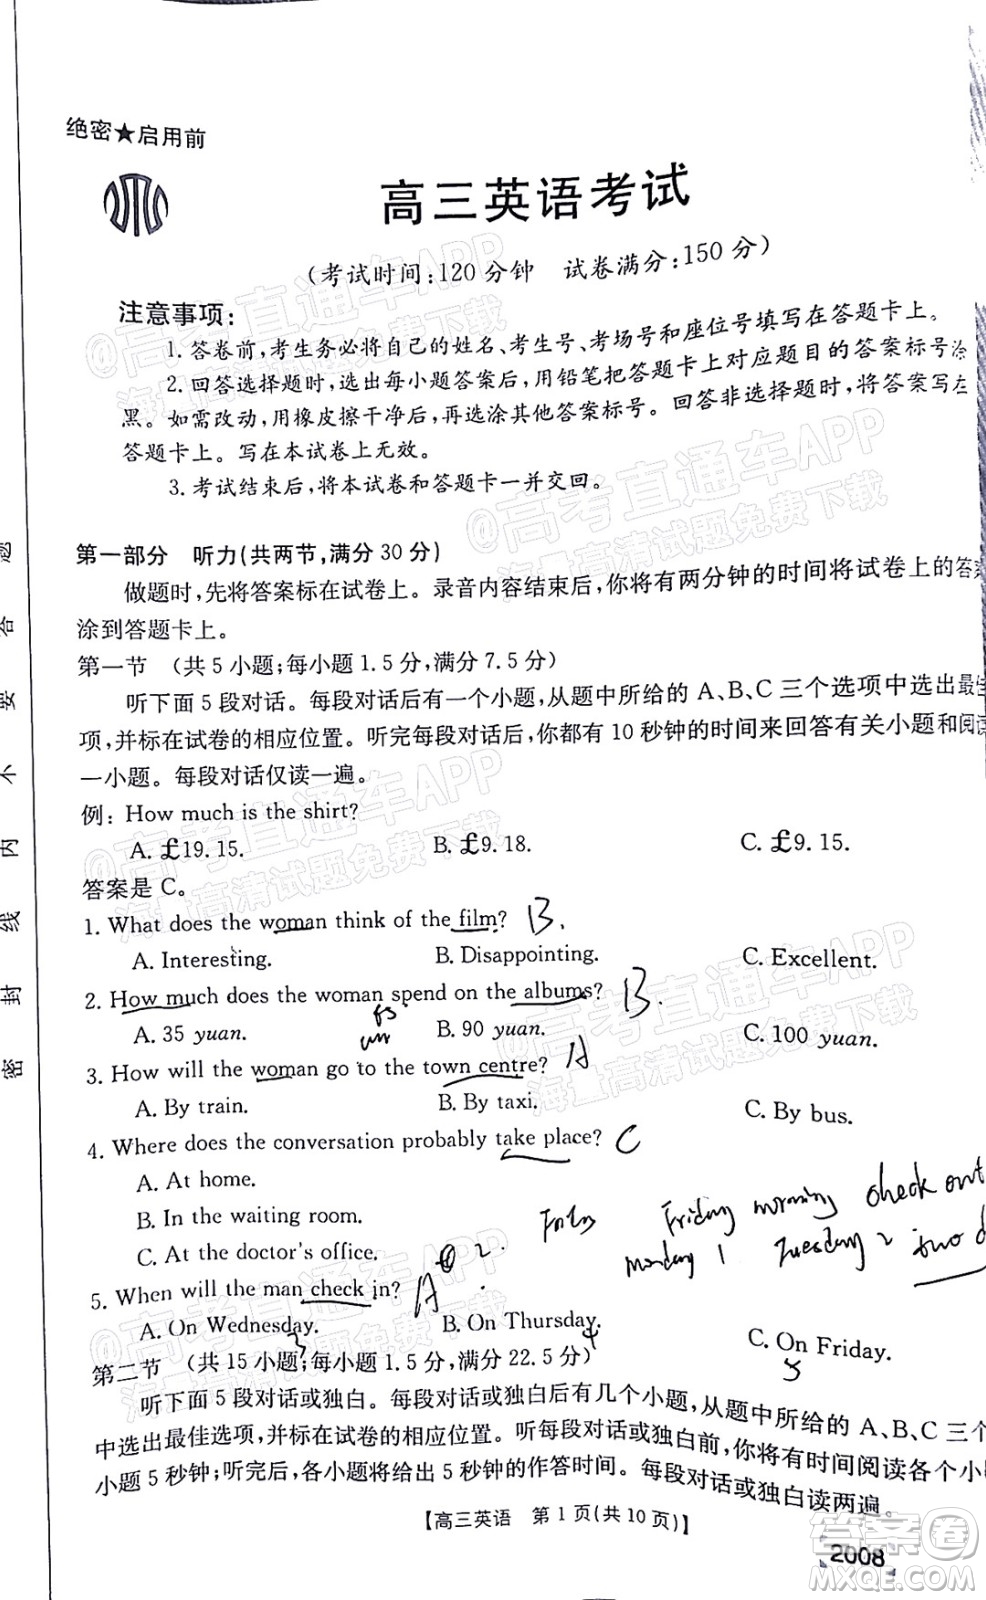 绝密★启用前
高三英语考试
(考试时间:120分钟 试卷满分:150分)
注意事项:
1.答卷前,考生务必将自己的姓名、考生号、考场号和座位号填写在答题卡上。
2.回答选择题时,选出每小题答案后,用铅笔把答题卡上对应题目的答案标号涂
黑。如需改动,用橡皮擦干净后,再选涂其他答案标号。回答非选择题时,将答案写在
答题卡上。写在本试卷上无效。
3.考试结束后,将本试卷和答题卡一并交回。
第一部分 听力(共两节,满分30分)
做题时,先将答案标在试卷上。录音内容结束后,你将有两分钟的时间将试卷上的答案
涂到答题卡上。
第一节 (共5小题;每小题1.5分,满分7.5分)
听下面5段对话。每段对话后有一个小题,从题中所给的A、B、C三个选项中选出最佳
项,并标在试卷的相应位置。听完每段对话后,你都有10秒钟的时间来回答有关小题和阅读
一小题。每段对话仅读一遍。
例: How much is the shirt?
A. £19. 15. B. £9. 18. C. £9. 15.
答案是 C。
1. What does the woman think of the film? B.
A. Interesting. B. Disappointing. C. Excellent.
2. How much does the woman spend on the albums? B.
A. 35 yuan. B. 90 yuan. C. 100 yuan.
3. How will the woman go to the town centre? A
A. By train. B. By taxi. C. By bus.
4. Where does the conversation probably take place? C
A. At home.
B. In the waiting room.
C. At the doctor's office.
Friday morning check out
Monday 1 Tuesday 2 two d
5. When will the man check in? A
A. On Wednesday. B. On Thursday. C. On Friday.
3 4 5
第二节 (共15小题;每小题1.5分,满分22.5分)
听下面5段对话或独白。每段对话或独白后有几个小题,从题中所给的A、B、C三个
中选出最佳选项,并标在试卷的相应位置。听每段对话或独白前,你将有时间阅读各个小
小题5秒钟;听完后,各小题将给出5秒钟的作答时间。每段对话或独白读两遍。
【高三英语 第1页(共10页)】
2008
密 封 线 内 不 要 答 题
@高考直通车APP
海量高清试题免费下载
@高考直通车APP
海量高清试题免费下载
@高考直通车APP
海量高清试题免费下载
@高考直通车APP
海量高清试题免费下载
@高考直通车APP
海量高清试题免费下载
答案圈
MXQE.COM